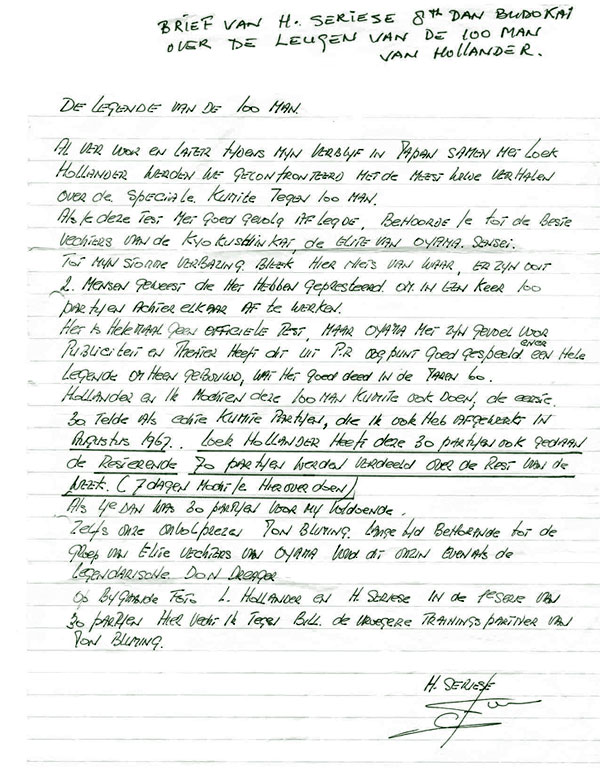 BRIEF VAN H. SERIESE 8TH DAN BUDOKAI
OVER DE LEUGEN VAN DE 100 MAN
VAN HOLLANDER.
DE LEGENDE VAN DE 100 MAN.
AL VER VOOR EN LATER TYDENS MYN VERBLYF IN JAPAN SAMEN MET LOEK
HOLLANDER WERDEN WE GECONFRONTEERD MET DE MEEST WILDE VERHALEN
OVER DE SPECIALE KUMITE TEGEN 100 MAN.
ALS JE DEZE TEST MET GOED GEVOLG AFLEGDE, BEHOORDE JE TOT DE BESTE
VECHTERS VAN DE KYOKUSHINKAI, DE ELITE VAN OYAMA SENSEI.
TOT MYN STOMME VERBAZING BLEEK HIER NIETS VAN WAAR, ER ZYN OOIT
2. MENSEN GEWEEST DIE HET HEBBEN GEPRESTEERD OM IN EEN KEER 100
PARTYEN ACHTER ELKAAR AF TE WERKEN.
HET IS HELEMAAL GEEN OFFICIELE TEST, MAAR OYAMA MET ZYN GEVOEL VOOR
PUBLICITEIT EN THEATER HEEFT DIT UIT P.R OOGPUNT GOED GESPEELD EN ER EEN HELE
LEGENDE OM HEEN GEBOUWD, WAT HET GOED DEED IN DE JAREN 60.
HOLLANDER EN IK MOCHTEN DEZE 100 MAN KUMITE OOK DOEN, DE EERSTE
30 TELDE ALS ECHTE KUMITE PARTYEN, DIE IK OOK HEB AFGEWERKT IN
AUGUSTUS 1967. LOEK HOLLANDER HEEFT DEZE 30 PARTYEN OOK GEDAAN
DE RESTERENDE 70 PARTYEN WERDEN VERDEELD OVER DE REST VAN DE
WEEK. (7 DAGEN MOCHT JE HIEROVER DOEN)
ALS 4E DAN WAS 30 PARTYEN VOOR MY VOLDOENDE.
ZELFS ONZE ONVOLPREZEN JON BLUMING. LANGE TYD BEHORENDE TOT DE
GROEP VAN ELITE VECHTERS VAN OYAMA VOND DIT ONZIN EVENALS DE
LEGENDARISCHE DON DREAGER
OP BYGAANDE FOTO L. HOLLANDER EN H. SERIESE IN DE 1E SERIE VAN
30 PARTYEN HIER VECHT IK TEGEN BILL DE VROEGERE TRAININGSPARTNER VAN
JON BLUMING.
H. SERIESE